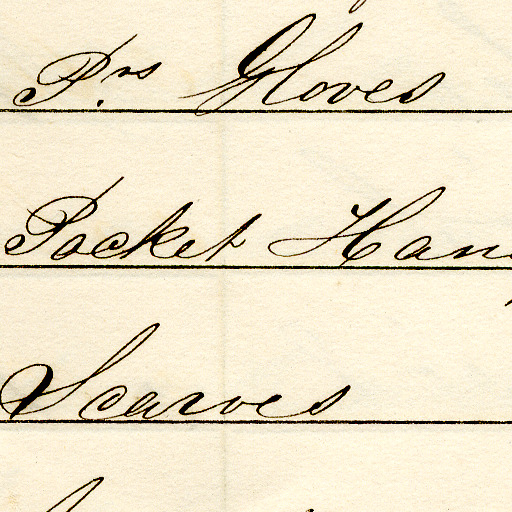 Prs Gloves
Pocket Han
Scarves